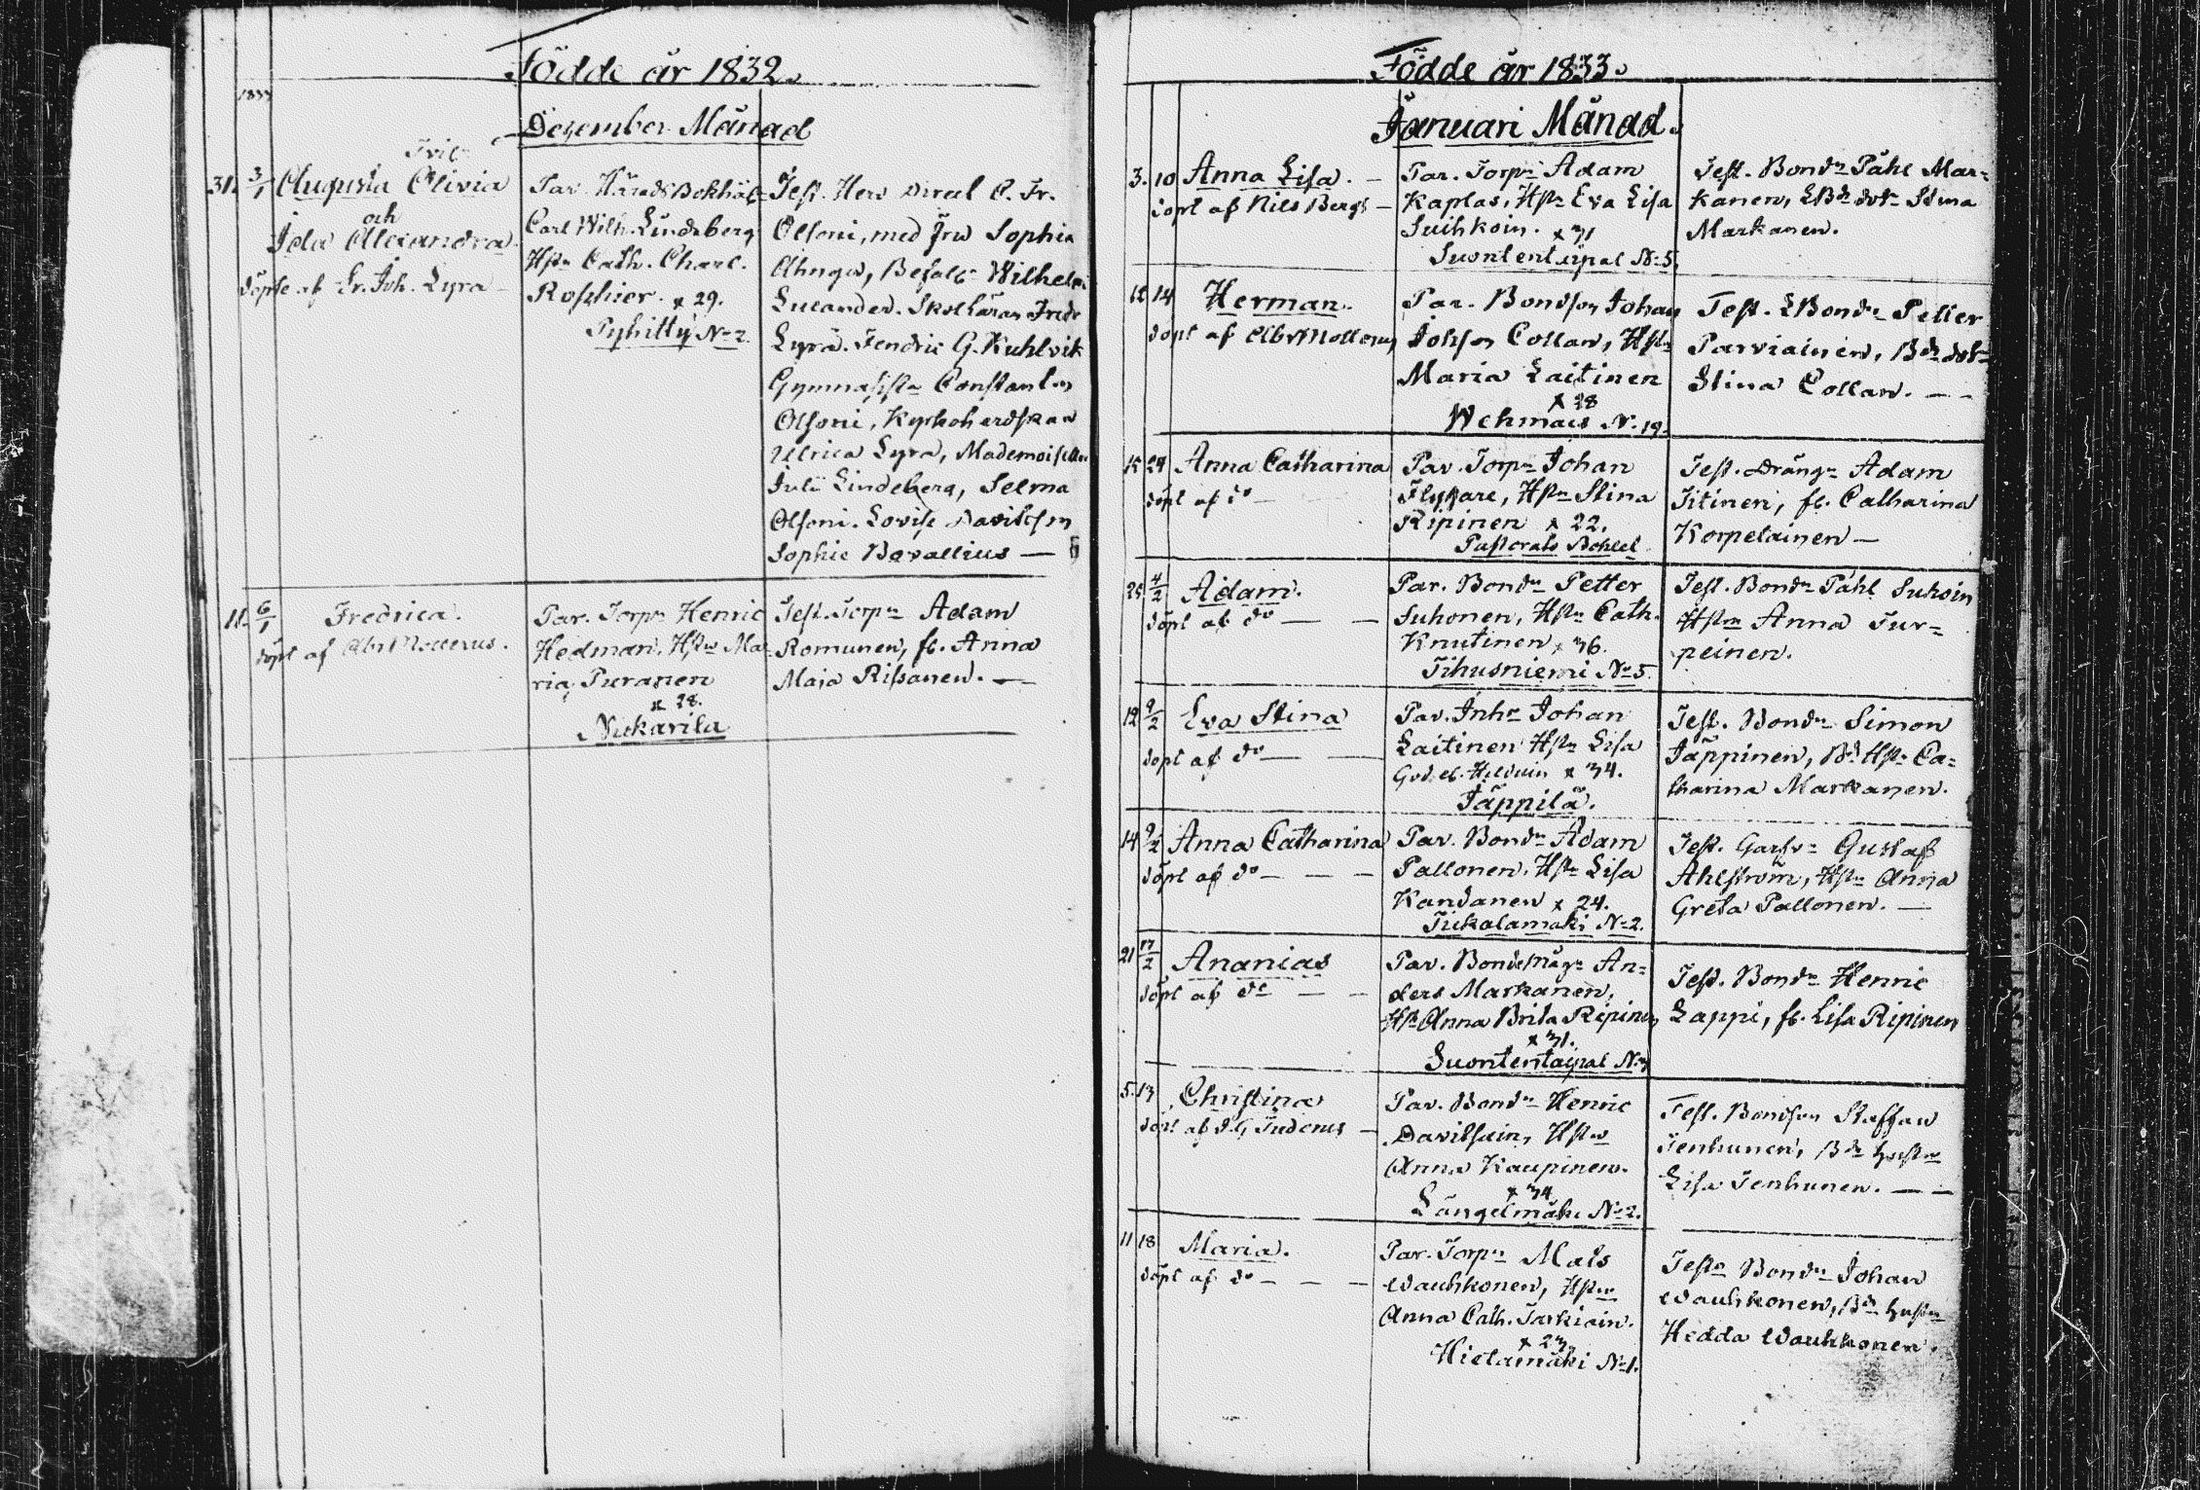 Födde år 1832.
1833
Dezember Månad
31. 3/1 Augusta Olivia
och
Ida Alexandra
döpte af Gr. Joh. Lyra
Par. Härads Bokhål-
Carl Wilh. Lindeberg
Hstr Cath. Charl.
Roschier. x 29.
Pyhitty No 2.
Test. Herr Direct C. Fr.
Olsoni, med Fru Sophia
Ahnger, Befalb. Wilhelm
Lucander. Skollären Fredr
Lyra. Fendric G. Kuhlvik
Gymnasista Constantin
Olsoni, Kyrkoherdskan
Ulrica Lyra, Mademoiselle
Julie Lindeberg, Selma
Olsoni. Lovise Davidson
Sophie Bavallius —
11. 6/1 Fredrica.
döpt af Abr Mollerus.
Par. Torpn Henric
Hedman, Hstr Ma-
ria Puranen
x 28.
Nickarila
Test. Torpn Adam
Romunen, fl. Anna
Maja Rissanen. —
Födde år 1833.
Januari Månad.
3. 10 Anna Lisa. —
döpt af Nils Bergh —
Par. Torpn Adam
Kaplas, Hstr Eva Lisa
Suihkoin. x 31
Suontentaipal No 5.
Test. Bondn Påhl Mar-
kanen, LBdedotr Stina
Markanen.
12 14 Herman.
döpt af Abr Mollerus
Par. Bondson Johan
Johson Collan, Hstr
Maria Laitinen
x 28
Wehmais No 19.
Test. LBondn Petter
Parviainen, Bdedotr
Stina Collan. — —
15 29 Anna Catharina
döpt af do —
Par. Torpn Johan
Flygare, Hstr Stina
Ripinen x 22.
Pastorats Bohlet.
Test. Drängn Adam
Iitinen, fl. Catharina
Korpelainen —
25 4/2 Adam.
döpt af do — —
Par. Bondn Petter
Suhonen, Hstr Cath.
Knutinen x 36.
Tihusniemi No 5
Test. Bondn Påhl Suhoin
Hstrn Anna Tur-
peinen.
12 9/2 Eva Stina
döpt af do — —
Par. Inhr Johan
Laitinen Hstr Lisa
x 34.
Jäppilä.
Test. Bondn Simon
Jäppinen, Bd Hstr Ca-
tharina Markanen.
14 9/2 Anna Catharina
döpt af do — — —
Par. Bondn Adam
Pallonen, Hstr Lisa
Kandanen x 24.
Tiikalamäki No 2.
Test. Garfv- Gustaf
Ahlström, Hstr Anna
Greta Pallonen. —
21 17/2 Ananias
döpt af do — —
Par. Bondemågn An-
ders Markanen,
Hstr Anna Brita Ripinen
x 31.
Suontentaipal No 7
Test. Bondn Henric
Lappi, fl. Lisa Ripinen
5. 13 Christina
döpt af J. G. Tudenus —
Par. Bondn Henric
Davilsain, Hstr
Anna Kaupinen.
x 34
Längelmäki No 2.
Test. Bondson Staffan
Tenhunen, Bde hustru
Lisa Tenhunen. — —
11 18 Maria.
döpt af do — — —
Par. Torpn Mats
Wauhkonen, Hstr
Anna Cath. Tarkiain.
x 23,
Hietamäki No 1.
Test. Bondn Johan
Wauhkonen, Bde hustru
Hedda Wauhkonen.